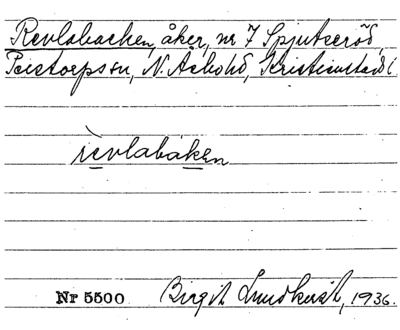 Revlabacken, åker, nr 7 Spjutseröd,
Perstorps sn, N. Åsbohd, Kristianstads l
revlabaken
Nr 5500 Birgit Lundkvist, 1936.